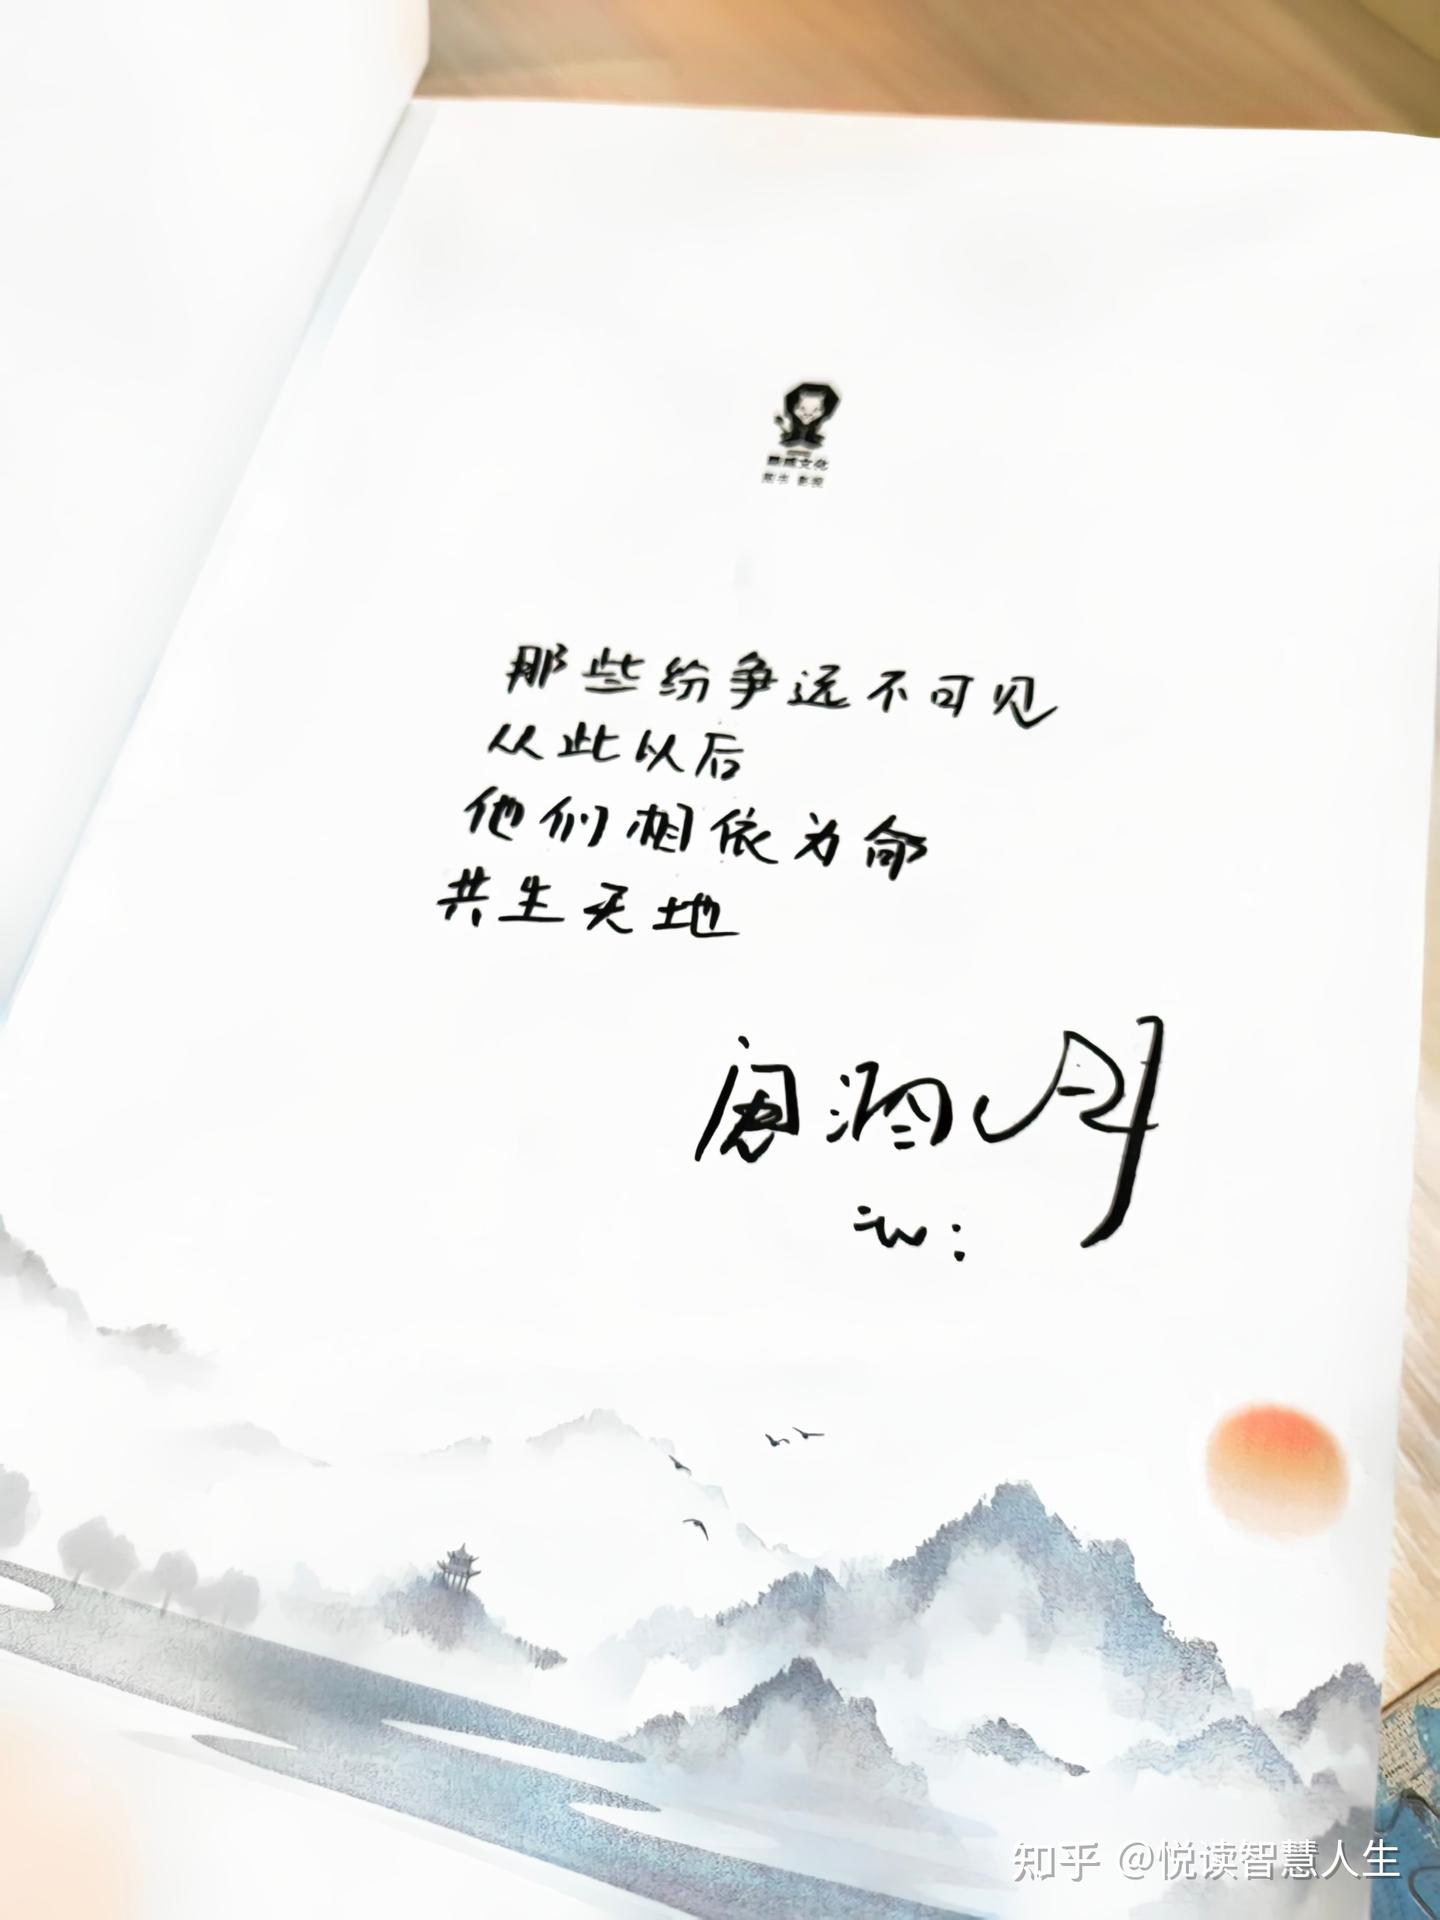 文化
图书 影视
那些纷争远不可见
从此以后
他们相依为命
共生天地
知乎 @悦读智慧人生